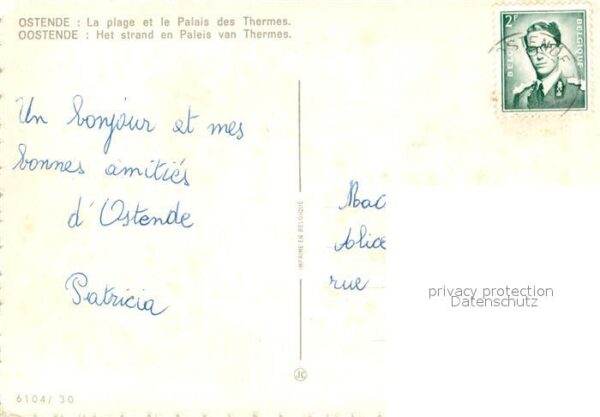 OSTENDE : La plage et le Palais des Thermes.
OOSTENDE : Het strand en Paleis van Thermes.
2F
BELGIË
BELGIQUE
Un bonjour et mes
bonnes amitiés
d'Ostende
Patricia
IMPRIME EN BELGIQUE
Alice
rue
privacy protection
Datenschutz
6104/ 30